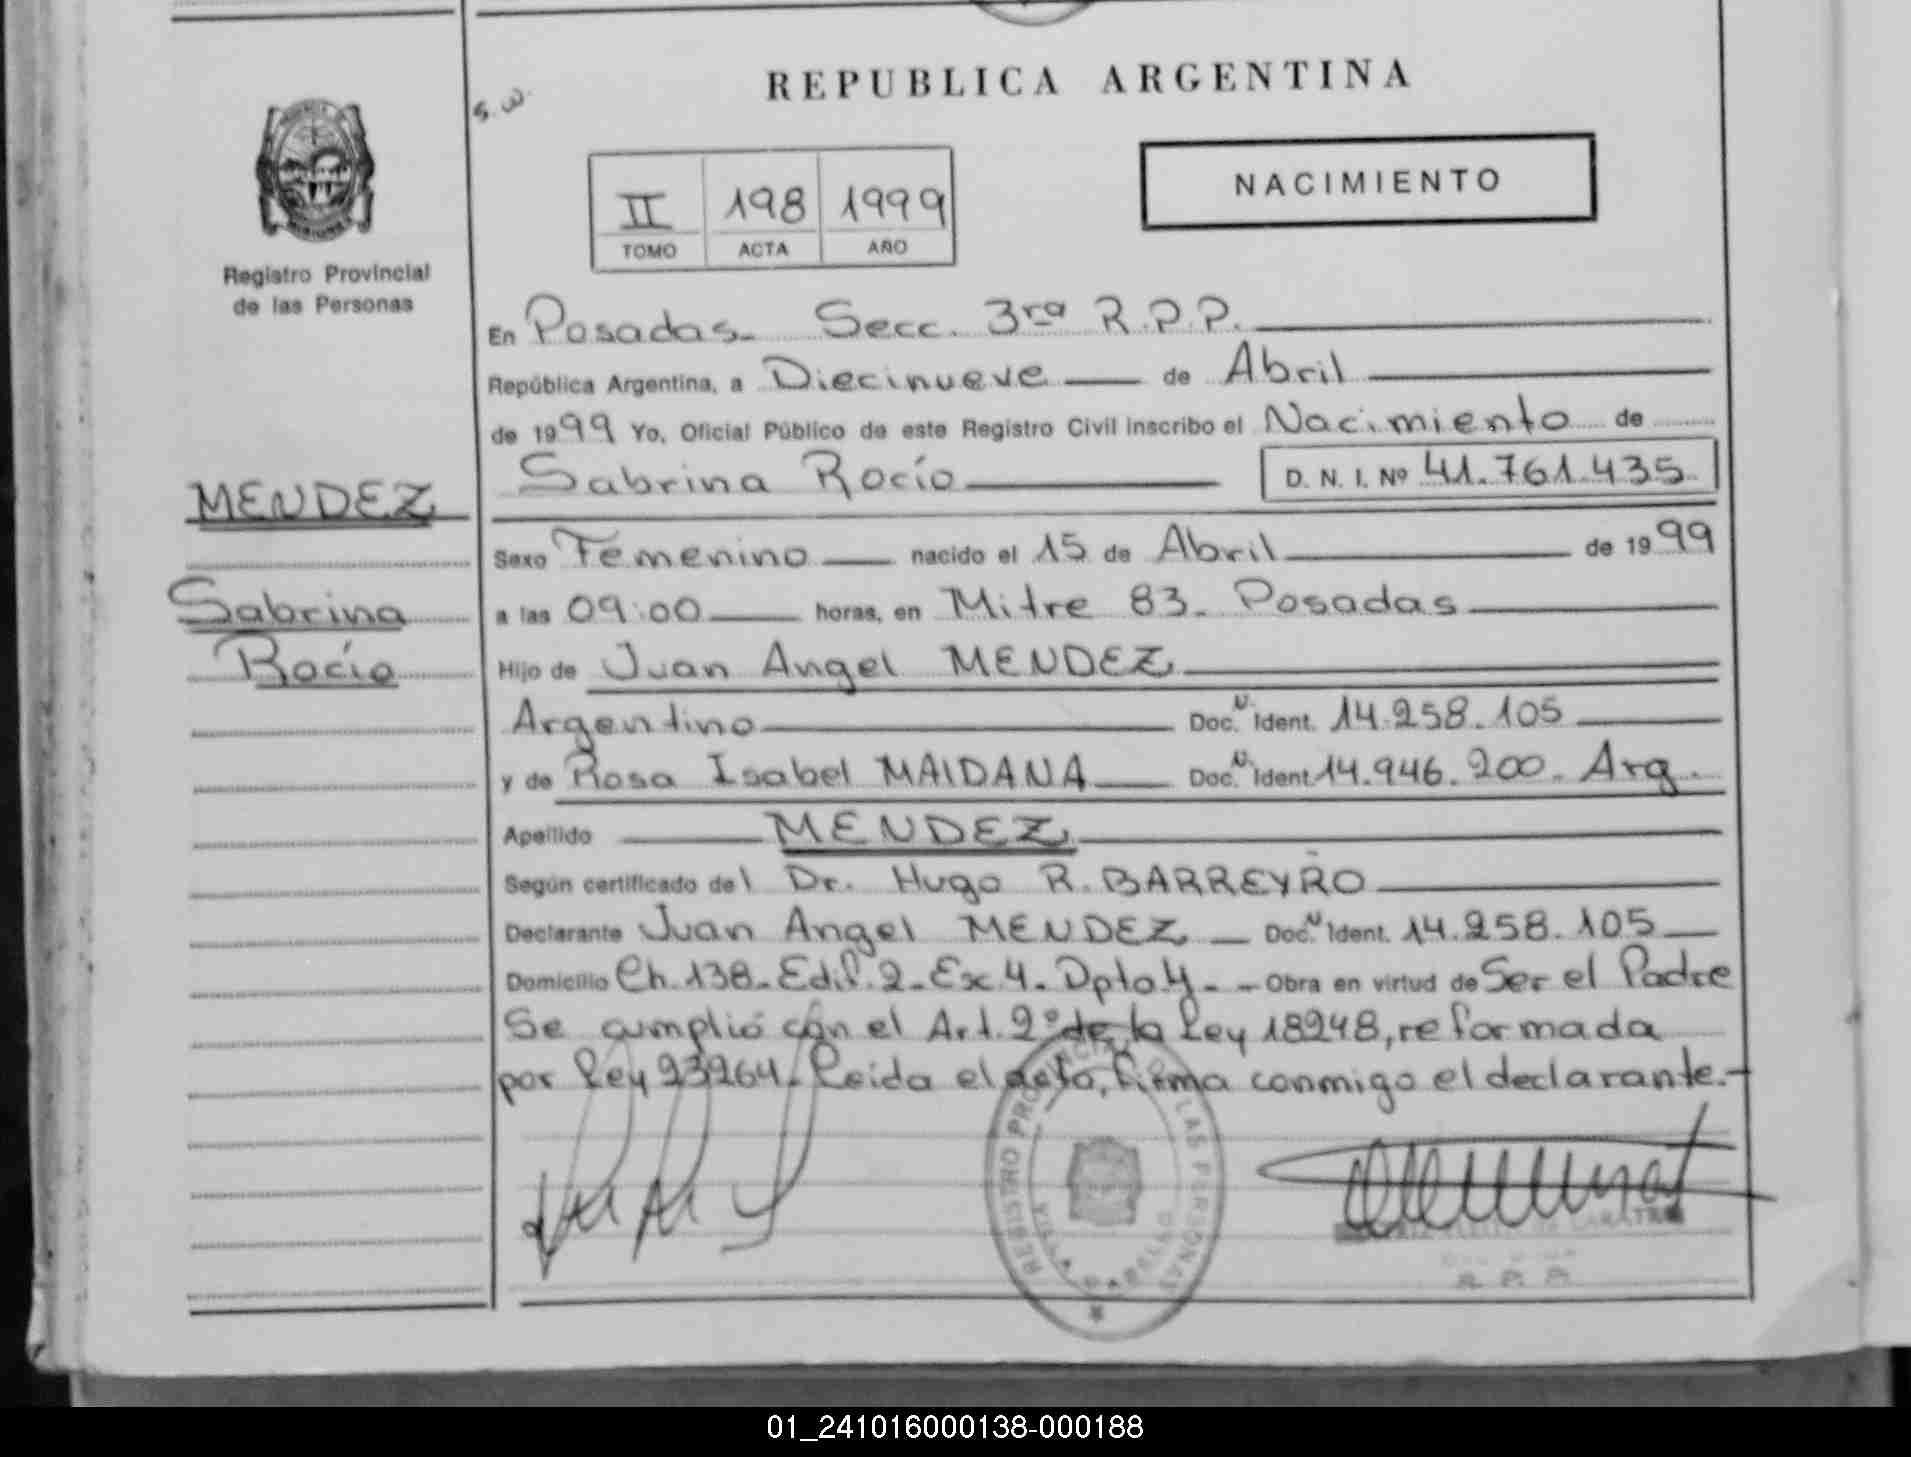 REPUBLICA ARGENTINA
NACIMIENTO
II 198 1999
TOMO ACTA AÑO
Registro Provincial
de las Personas
En Posadas - Secc. 3ra R.P.P.
República Argentina, a Diecinueve de Abril
de 1999 Yo, Oficial Público de este Registro Civil inscribo el Nacimiento de
Sabrina Rocío D. N. I. Nº 41.761.435
MENDEZ
Sabrina
Rocío
Sexo Femenino nacido el 15 de Abril de 1999
a las 09:00 horas, en Mitre 83 - Posadas
Hijo de Juan Angel MENDEZ
Argentino Doc. N Ident. 14.258.105
y de Rosa Isabel MAIDANA Doc. N Ident. 14.946.200 - Arg.
Apellido MENDEZ
Según certificado del Dr. Hugo R. BARREYRO
Declarante Juan Angel MENDEZ - Doc. N Ident. 14.258.105
Domicilio Ch. 138 - Edif. 2 - Esc. 4 - Dpto 4 - - Obra en virtud de Ser el Padre
Se cumplió con el Art. 2º de la Ley 18248, reformada
por Ley 23264. Leida el acta, firma conmigo el declarante.-
REGISTRO PROVINCIAL DE LAS PERSONAS
R. P. P.
01_241016000138-000188